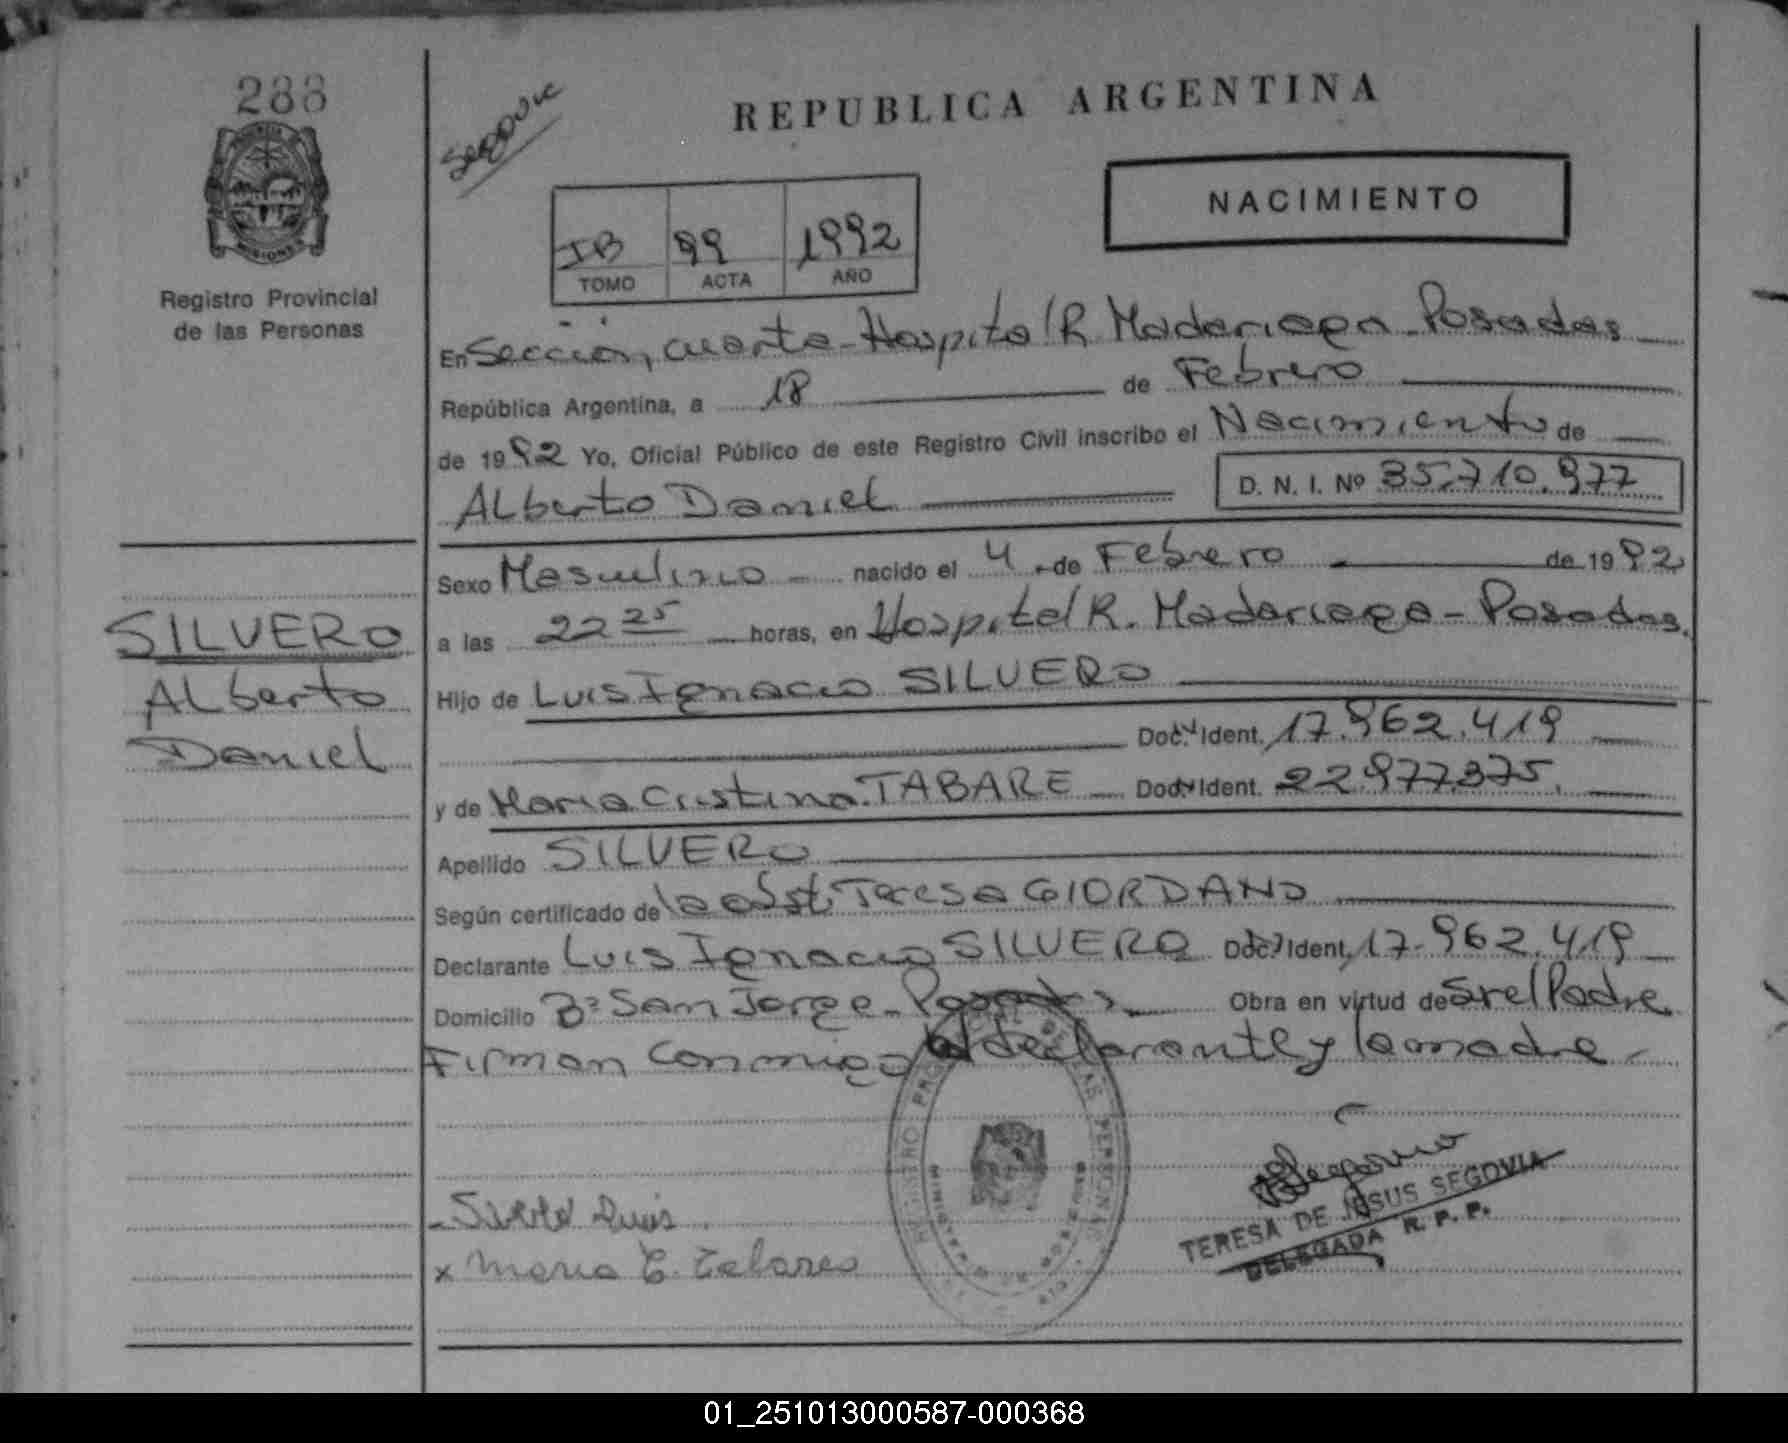 288
Segovic
REPUBLICA ARGENTINA
NACIMIENTO
IB 99 1992
TOMO ACTA AÑO
Registro Provincial
de las Personas
En Sección, cuarta - Hospital R. Madariaga - Posadas
República Argentina, a 18 de Febrero
de 1992 Yo, Oficial Público de este Registro Civil inscribo el Nacimiento de
Alberto Daniel D. N. I. Nº 35.710.977
Sexo Masculino nacido el 4 de Febrero de 1992
SILVERO
Alberto
Daniel
a las 22 25 horas, en Hospital R. Madariaga - Posadas.
Hijo de Luis Ignacio SILVERO
Doc. Ident. 17.962.419
y de Maria Cristina TABARE Doc. Ident. 22.977.375.
Apellido SILVERO
Según certificado de la obst. Teresa GIORDANO
Declarante Luis Ignacio SILVERO Doc. Ident. 17.962.419
Domicilio Bº San Jorge - Posadas Obra en virtud de Sr el Padre
Firman Conmigo el declarante y la madre -
REGISTRO PROVINCIAL DE LAS PERSONAS
TERESA DE JESUS SEGOVIA
DELEGADA R. P. P.
Luis
x Maria C.
01_251013000587-000368